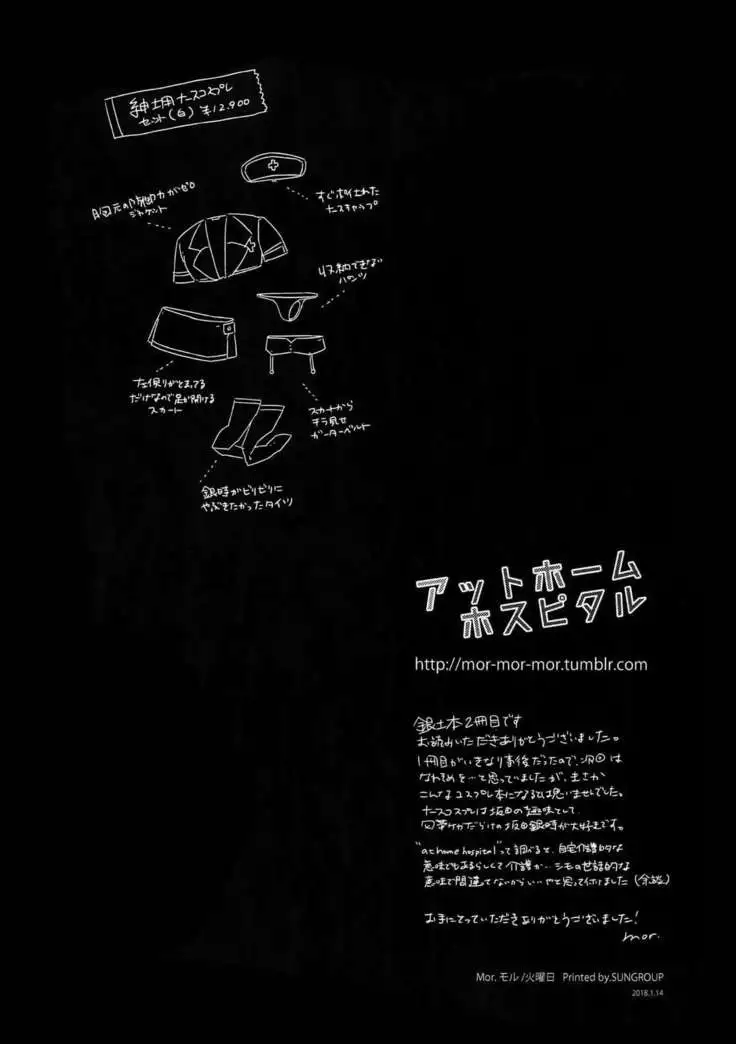 紳士用ナースコスプレ
セット(白) ¥12,900
すぐポイされた
ナースキャップ
胸元の防御力がゼロ
ジャケット
収納できない
パンツ
左側しかとまってる
だけなので足が開ける
スカート
スカートから
チラ見せ
ガーターベルト
銀時がビリビリに
やぶきたかったタイツ
アットホーム
ホスピタル
http://mor-mor-mor.tumblr.com
銀土本2冊目です
お読みいただきありがとうございました。
1冊目がいきなり事後だったので、次回は
なれそめを…と思っていましたが、まさか
こんなコスプレ本になるとは思いませんでした。
ナースコスプレは坂田の趣味として
包帯ケガだらけの坂田銀時が大好きです。
"at home hospital"って調べると、自宅介護的な
意味でもあるらしくて介護か…シモの世話的な
意味で間違ってないからいいやと思って付けました(余談)
お手にとっていただきありがとうございました!
mor.
Mor. モル/火曜日 Printed by.SUNGROUP
2018.1.14